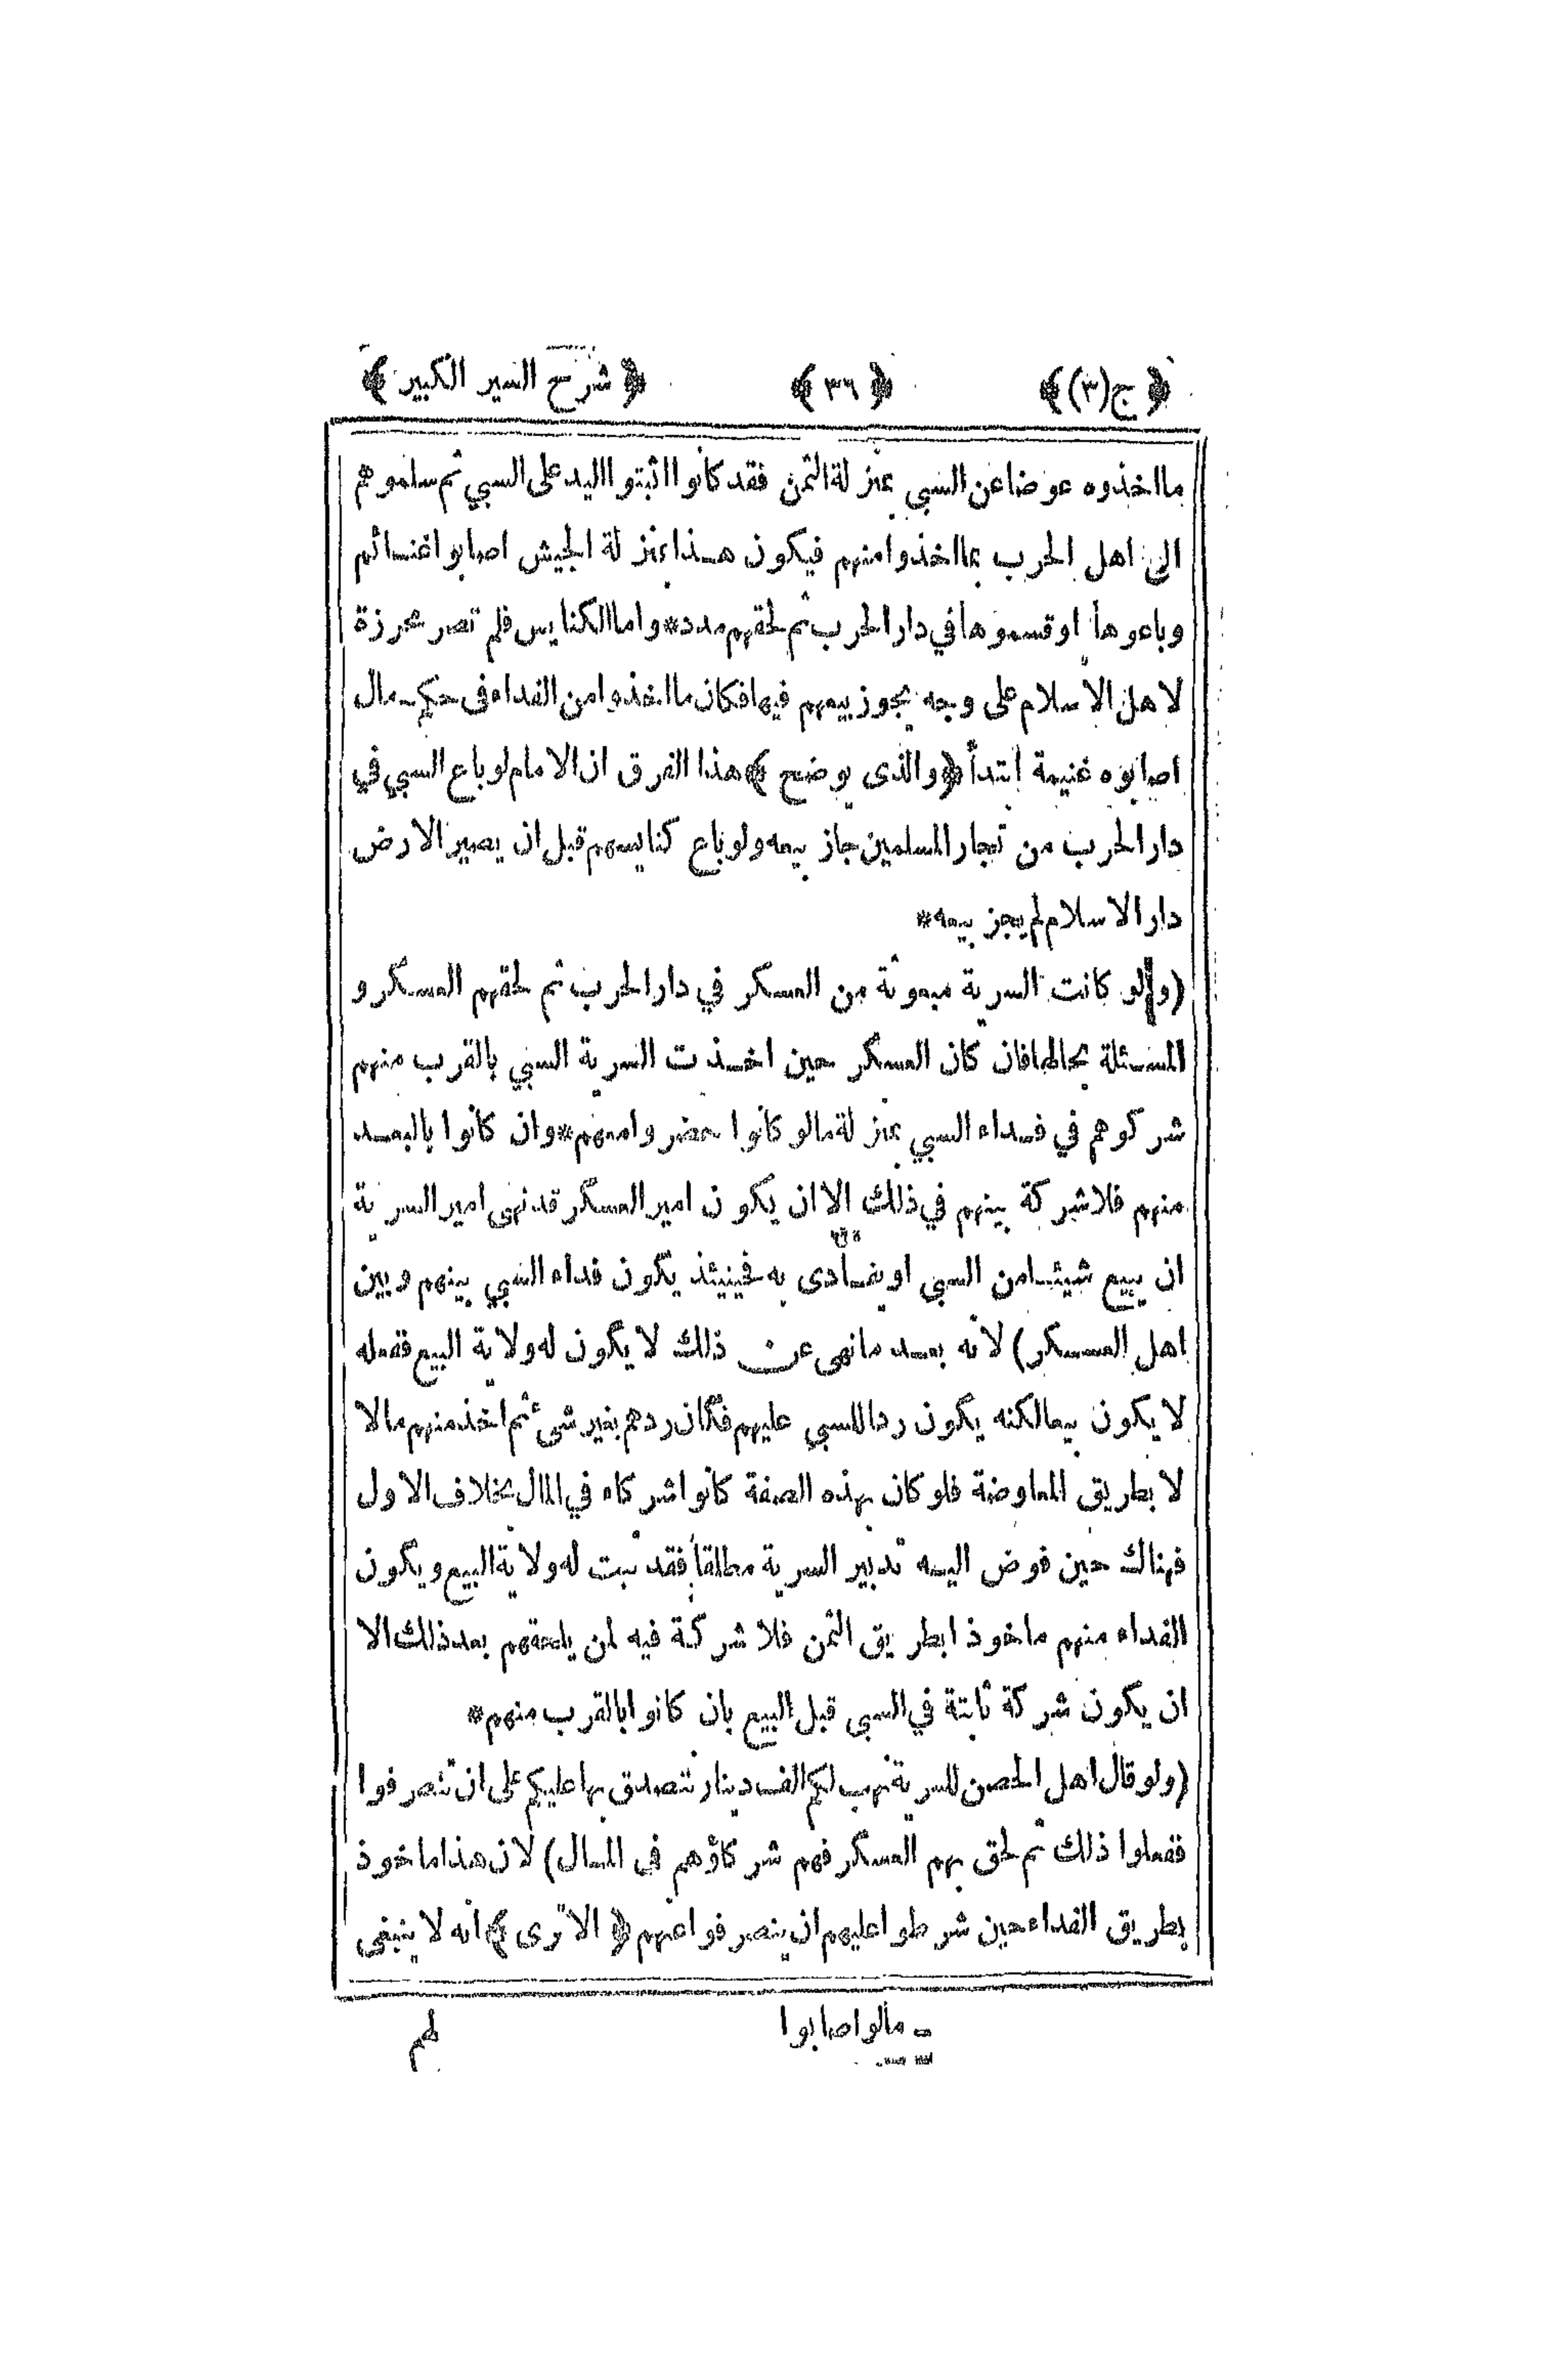 ﴿ج(٣)﴾ ﴿٣٦﴾ ﴿شرح السير الكبير﴾
ما اخذوه عوضا عن السبي بمنزلة الثمن فقد كانوا اثبتوا اليد على السبي ثم سلموهم
الى اهل الحرب بما اخذوا منهم فيكون هذا بمنزلة الجيش اصابوا غنائم
وباعوها او قسموها في دار الحرب ثم لحقهم مدد * واما الكنايس فلم تصر محرزة
لاهل الاسلام على وجه يجوز بيعهم فيها فكان ما اخذوا من الفداء فى حكم مال
اصابوه غنيمة ابتدأ ﴿والذى يوضح﴾ هذا الفرق ان الامام لو باع السبي في
دار الحرب من تجار المسلمين جاز بيعه ولو باع كنايسهم قبل ان يصير الارض
دار الاسلام لم يجز بيعه *
(ولو كانت السرية مبعوثة من العسكر في دار الحرب ثم لحقهم العسكر و
المسئلة بحالها فان كان العسكر حين اخذت السرية السبي بالقرب منهم
شركوهم في فداء السبي بمنزلة ما لو كانوا حضروا معهم * وان كانوا بالبعد
منهم فلا شركة بينهم في ذلك الا ان يكون امير العسكر قد نهى امير السرية
ان يبيع شيئا من السبى او يفادى به فحينئذ يكون فداء السبي بينهم وبين
اهل العسكر) لانه بعد ما نهى عن ذلك لا يكون له ولاية البيع ففعله
لا يكون بيعا لكنه يكون ردا للسبي عليهم فكان ردهم بغير شىء ثم اخذ منهم مالا
لا بطريق المعاوضة فلو كان بهذه الصفة كانوا شركاء في المال بخلاف الاول
فهناك حين فوض اليه تدبير السرية مطلقا فقد ثبت له ولاية البيع ويكون
الفداء منهم ماخوذا بطريق الثمن فلا شركة فيه لمن يلحقهم بعد ذلك الا
ان يكون شركة ثابتة في السبى قبل البيع بان كانوا بالقرب منهم *
(ولو قال اهل الحصن للسرية نهب لكم الف دينار نتصدق بها عليكم على ان تنصرفوا
ففعلوا ذلك ثم لحق بهم العسكر فهم شركاؤهم فى المال) لان هذا ماخوذ
بطريق الفداء حين شرطوا عليهم ان ينصرفوا عنهم ﴿الا ترى﴾ انه لا ينبغى
مالو اصابوا
لهم